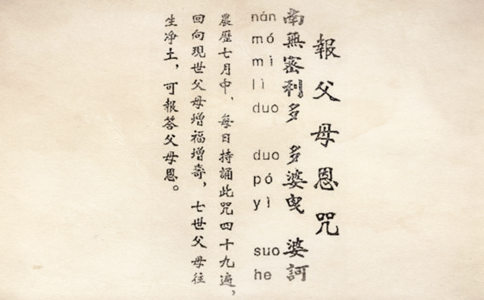 報父母恩咒
南無密利多 多婆曳 婆訶
nán mó mì lì duo duo pó yì suo he
農歷七月中，每日持誦此咒四十九遍，
回向現世父母增福增壽，七世父母往
生净土，可報答父母恩。